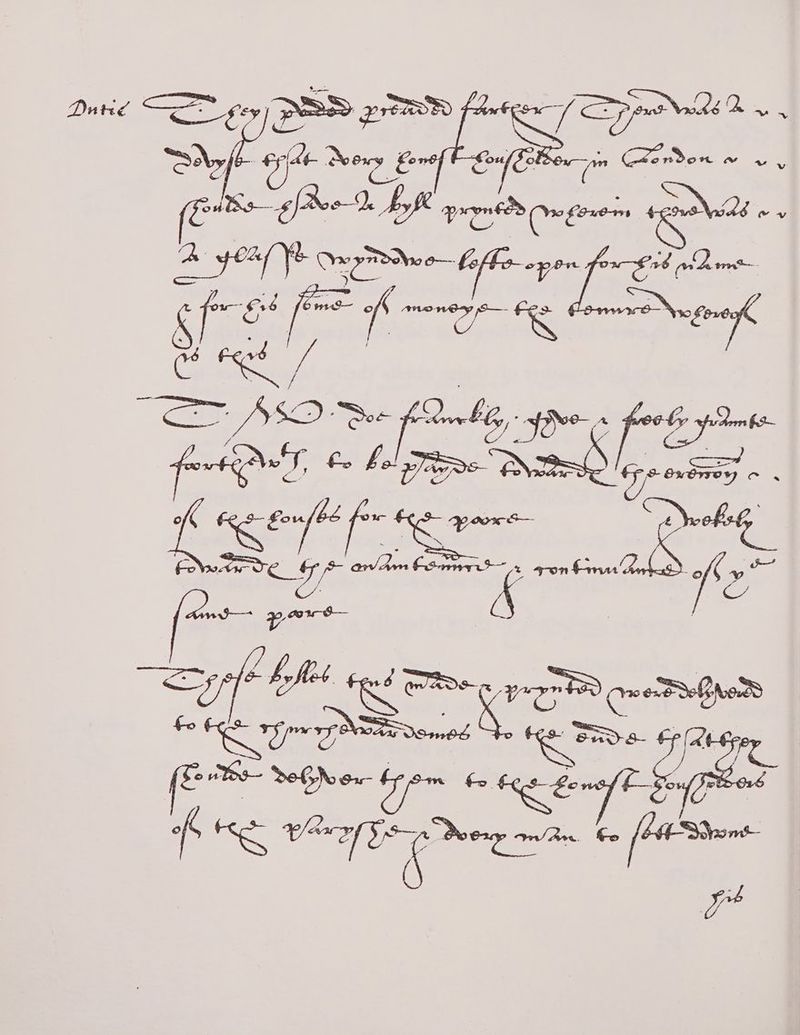 Dutie They proceaded farther / There was a
Devyse that every honest housholder in London
shoulde have a byll prynted wherein there was
a glasse wyndowe lefte open for his name
& for his some of moneye the tenure whereof
is this /
I doe franckly gyve & freely graunte
forthwth, to be payde towarde the erection
of the houses for the poore & wekely
towarde the maintenance & continuance of ye
same poore
These bylles thus made & prynted were delyvered
to the churchewardennes to the ende that they
shoulde delyver them to the honest housholders
of the paryshe & every man to sett downe
his